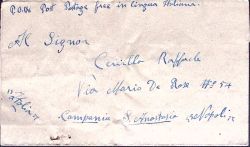 P.O.W. Post Postage free in lingua Italiana.
Al Signor
Cirillo Raffaele
Via Mario De Rosa N° 54
Campania S. Anastasia Napoli
Italia